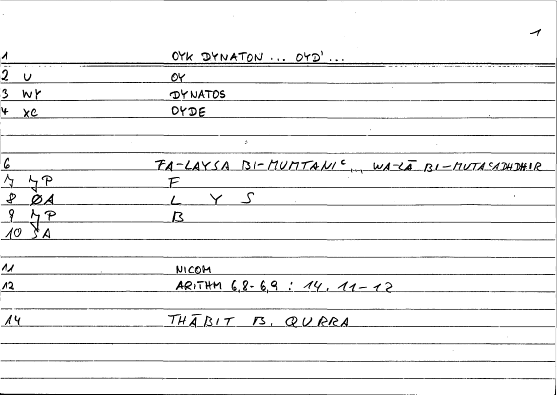 1
1 OYK DYNATON ... OYD' ...
2 U OY
3 WY DYNATOS
4 XC OYDE
6 FA-LAYSA BI-MUMTANIᶜ ... WA-LĀ BI-MUTAᶜADHDHIR
7 7P F
8 ØA L Y S
9 7P B
10 JA
11 NICOM
12 ARITHM 6,8-6,9 : 14. 11-12
14 THĀBIT B. QURRA